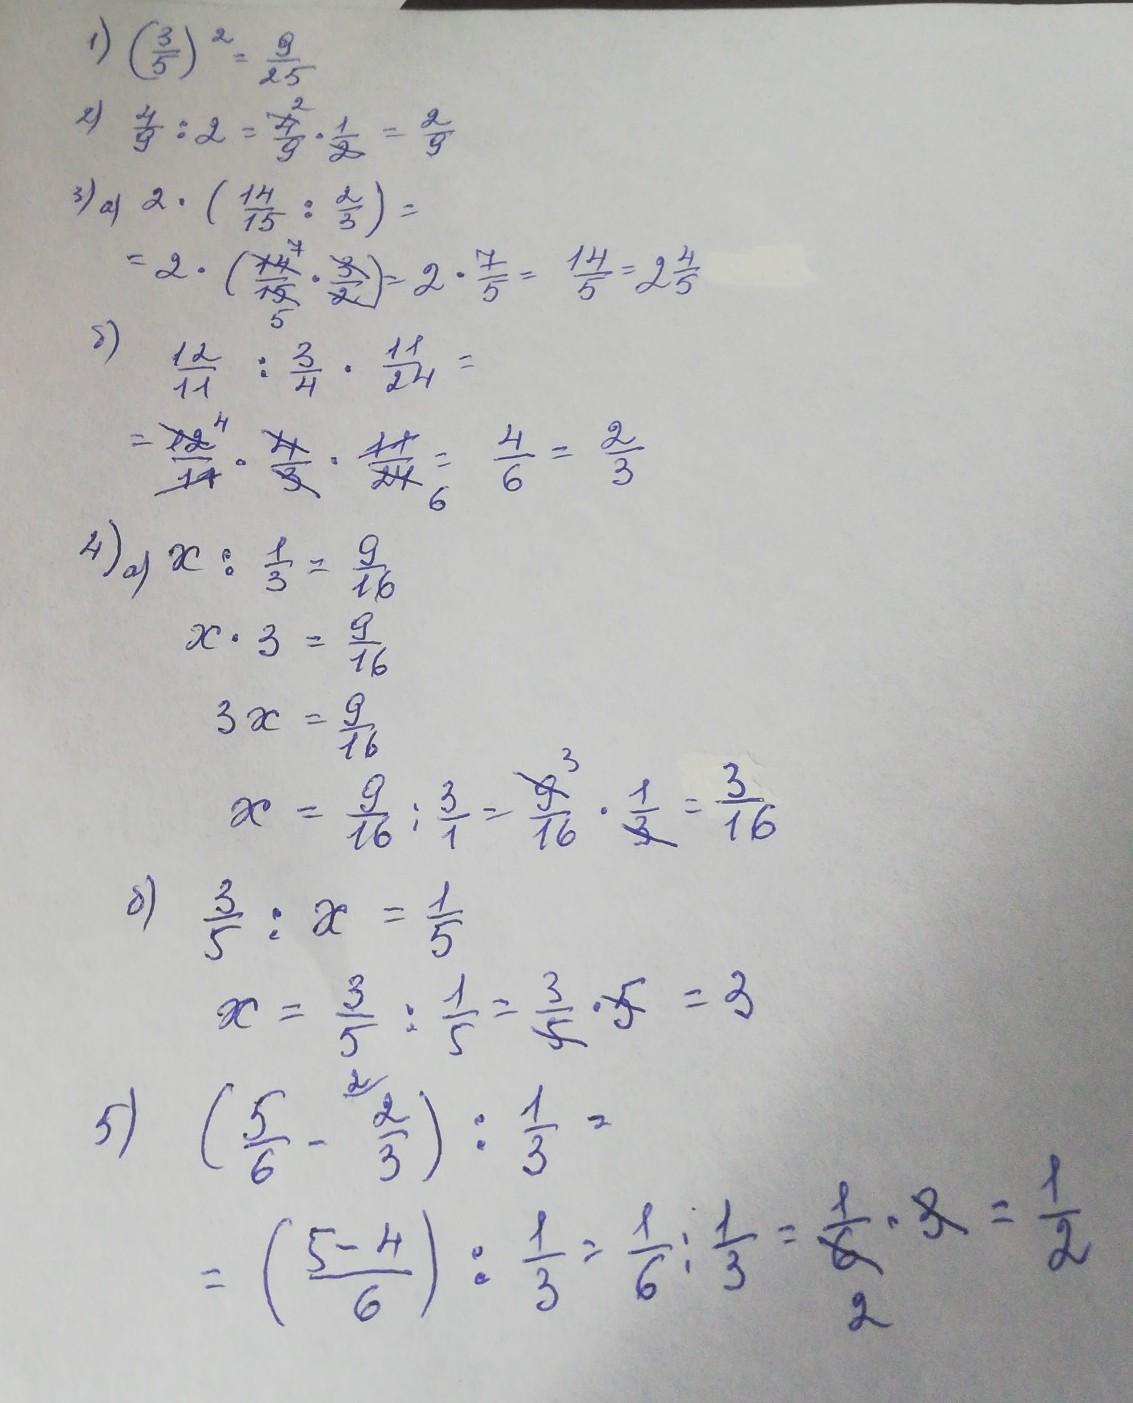 1) (3/5)² = 9/25
2) 4/9 : 2 = 4²/9 · 1/2 = 2/9
3) а) 2 · (14/15 : 2/3) =
= 2 · (14⁷/15₅ · 3/2) = 2 · 7/5 = 14/5 = 2 4/5
б)
12/11 : 3/4 · 11/24 =
= 12⁴/11 · 4/3 · 11/24₆ = 4/6 = 2/3
4) а) x : 1/3 = 9/16
x · 3 = 9/16
3x = 9/16
x = 9/16 : 3/1 = 9³/16 · 1/3 = 3/16
б) 3/5 : x = 1/5
x = 3/5 : 1/5 = 3/5 · 5 = 3
5) (5/6 - ²2/3) : 1/3 =
= (5-4/6) : 1/3 = 1/6 : 1/3 = 1/6₂ · 3 = 1/2